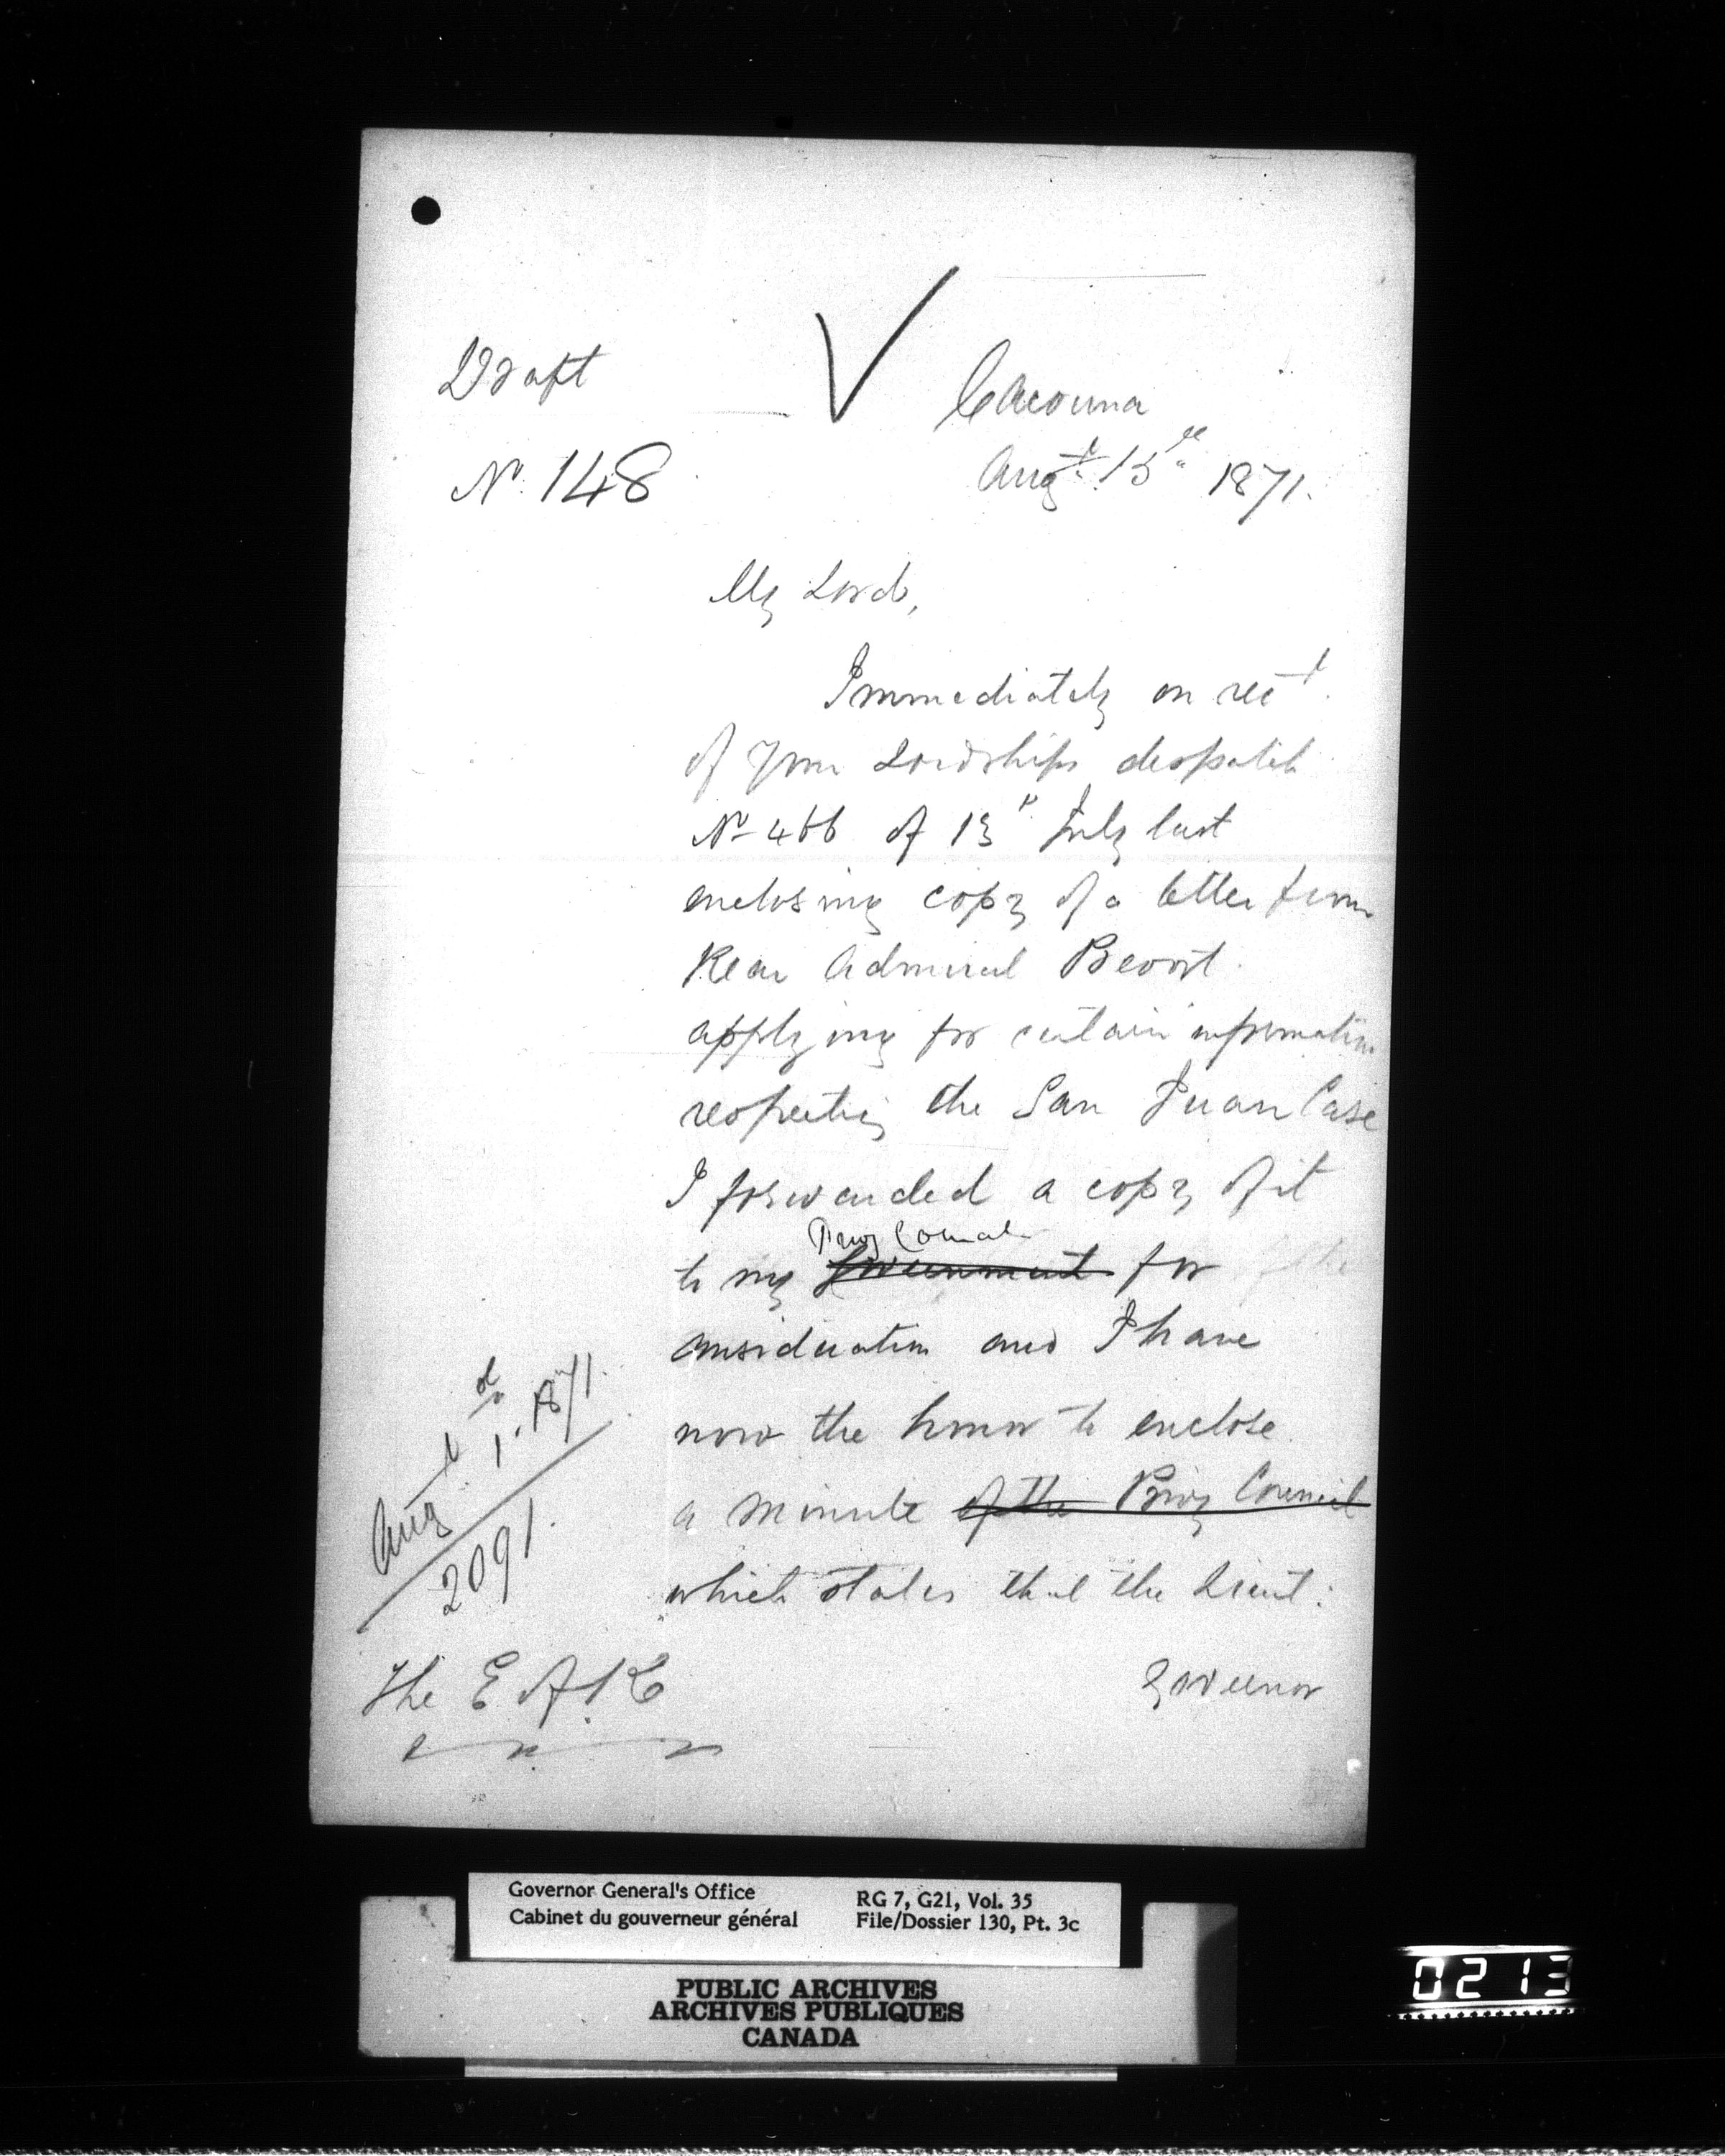 Draft
Cacouna
No. 148
Augt. 15th 1871.
My Lord,
Immediately on rect.
of your Lordships despatch
No 466 of 13th July last
enclosing copy of a letter from
Rear Admiral Prevost
applying for certain information
respecting the San Juan Case
I forwarded a copy of it
Privy Council
to my Government for
consideration and I have
now the honor to enclose
a minute of the Privy Council
which states that the Lieut:
Governor
Augt 1. 1871.
2091.
The E of K
Governor General's Office
Cabinet du gouverneur général
RG 7, G21, Vol. 35
File/Dossier 130, Pt. 3c
PUBLIC ARCHIVES
ARCHIVES PUBLIQUES
CANADA
0213